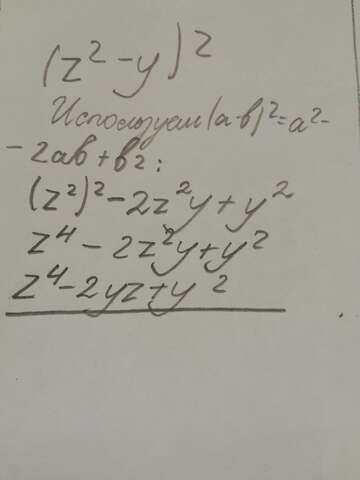 (z² - y)²
Используем (a-b)²=a²-
- 2ab + b2:
(z²)² - 2z²y + y²
z⁴ - 2z²y + y²
z⁴ - 2yz + y²